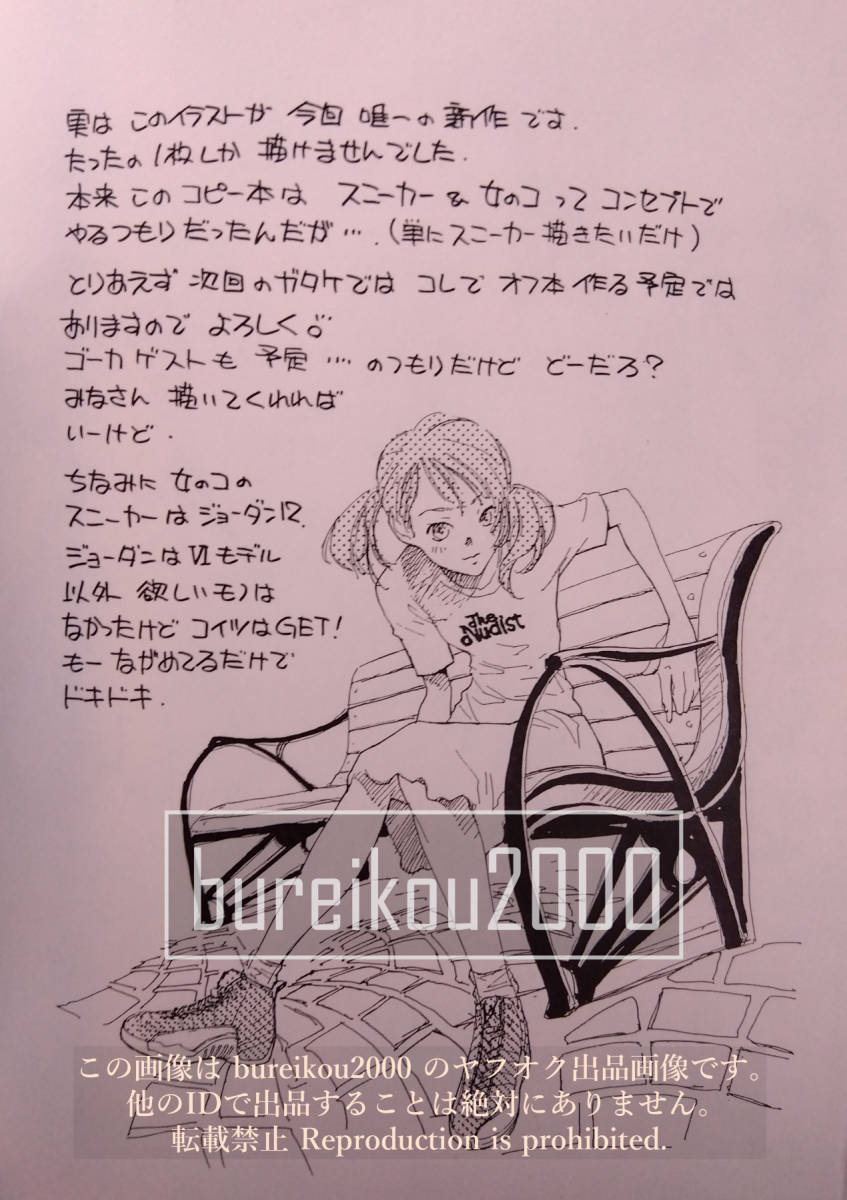 実は このイラストが 今回 唯一の 新作 です.
たったの 1枚しか 描けませんでした.
本来 この コピー本は スニーカー & 女のコ って コンセプトで
やるつもり だったんだが ‥‥.(単にスニーカー描きたいだけ)
とりあえず 次回のガタケでは コレで オフ本 作る予定では
ありますので よろしく。
ゴーカ ゲスト も 予定 ‥‥ のつもりだけど どーだろ?
みなさん 描いてくれれば
いーけど.
ちなみに 女のコの
スニーカーは ジョーダン12.
ジョーダンは Ⅵ モデル
以外 欲しいモノは
なかったけど コイツはGET!
もー ながめてるだけで
ドキドキ.
The
Nudist
bureikou2000
この画像は bureikou2000 のヤフオク出品画像です。
他のIDで出品することは絶対にありません。
転載禁止 Reproduction is prohibited.